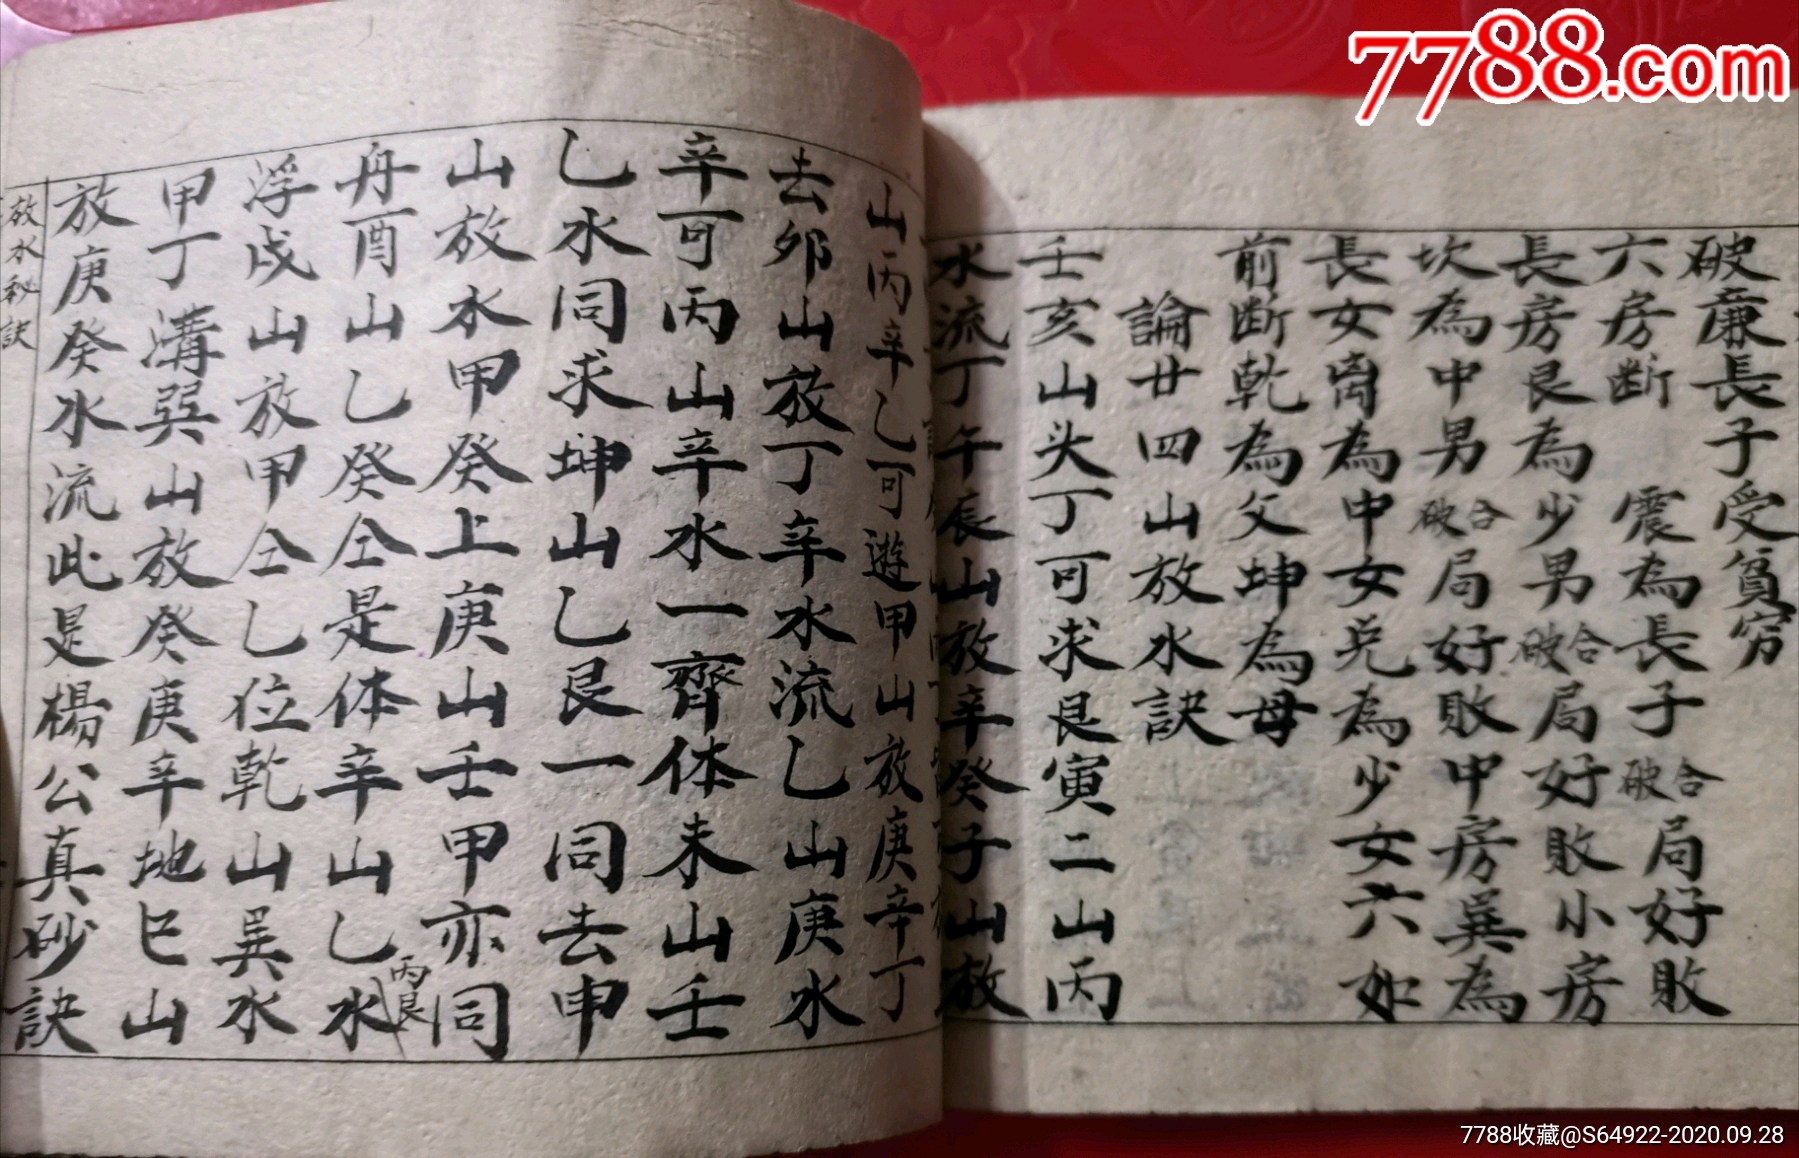 破廉長子受貧穷
六房断 震為長子合破局好敗
長房艮為少男合破局好敗小房
坎為中男合破局好敗中房巽為
長女离為中女兑為少女六如
前断乾為父坤為母
論廿四山放水訣
壬亥山头丁可求艮寅二山丙
水流丁午辰山放辛癸子山放
山丙辛乙可遊甲山放庚辛丁
去夘山放丁辛水流乙山庚水
辛可丙山辛水一齊体未山壬
乙水同求坤山乙艮一同去申
山放水甲癸上庚山壬甲亦同
丙艮
舟酉山乙癸仝是体辛山乙水
浮戌山放甲仝乙位乾山巽水
甲丁溝巽山放癸庚辛地巳山
放庚癸水流此是楊公真砂訣
放水秘訣
7788.com
7788收藏@S64922-2020.09.28